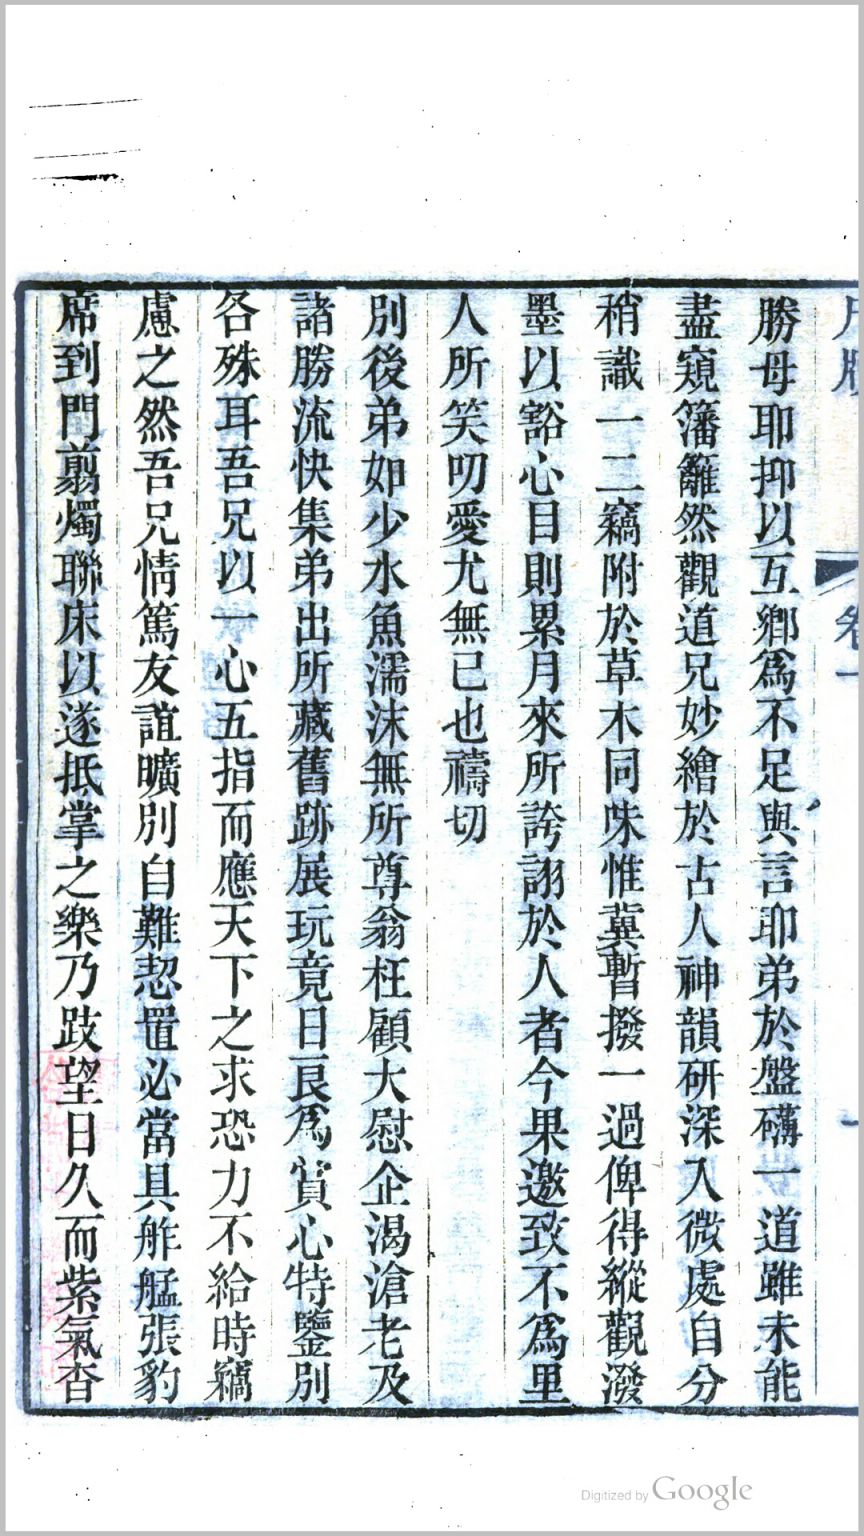 勝母耶抑以互鄉爲不足與言耶弟於盤礴一道雖未能
盡窺籓籬然觀道兄妙繪於古人神韻研深入微處自分
稍識一二竊附於草木同味惟冀暫撥一過俾得縱觀潑
墨以豁心目則累月來所誇詡於人者今果邀致不爲里
人所笑叨愛尤無已也禱切
別後弟如少水魚濡沫無所尊翁枉顧大慰企渴滄老及
諸勝流快集弟出所藏舊跡展玩竟日良爲賞心特鑒別
各殊耳吾兄以一心五指而應天下之求恐力不給時竊
慮之然吾兄情篤友誼曠別自難恝置必當具舴艋張豹
席到門翦燭聯床以遂抵掌之樂乃跂望日久而紫氣杳
Digitized by Google